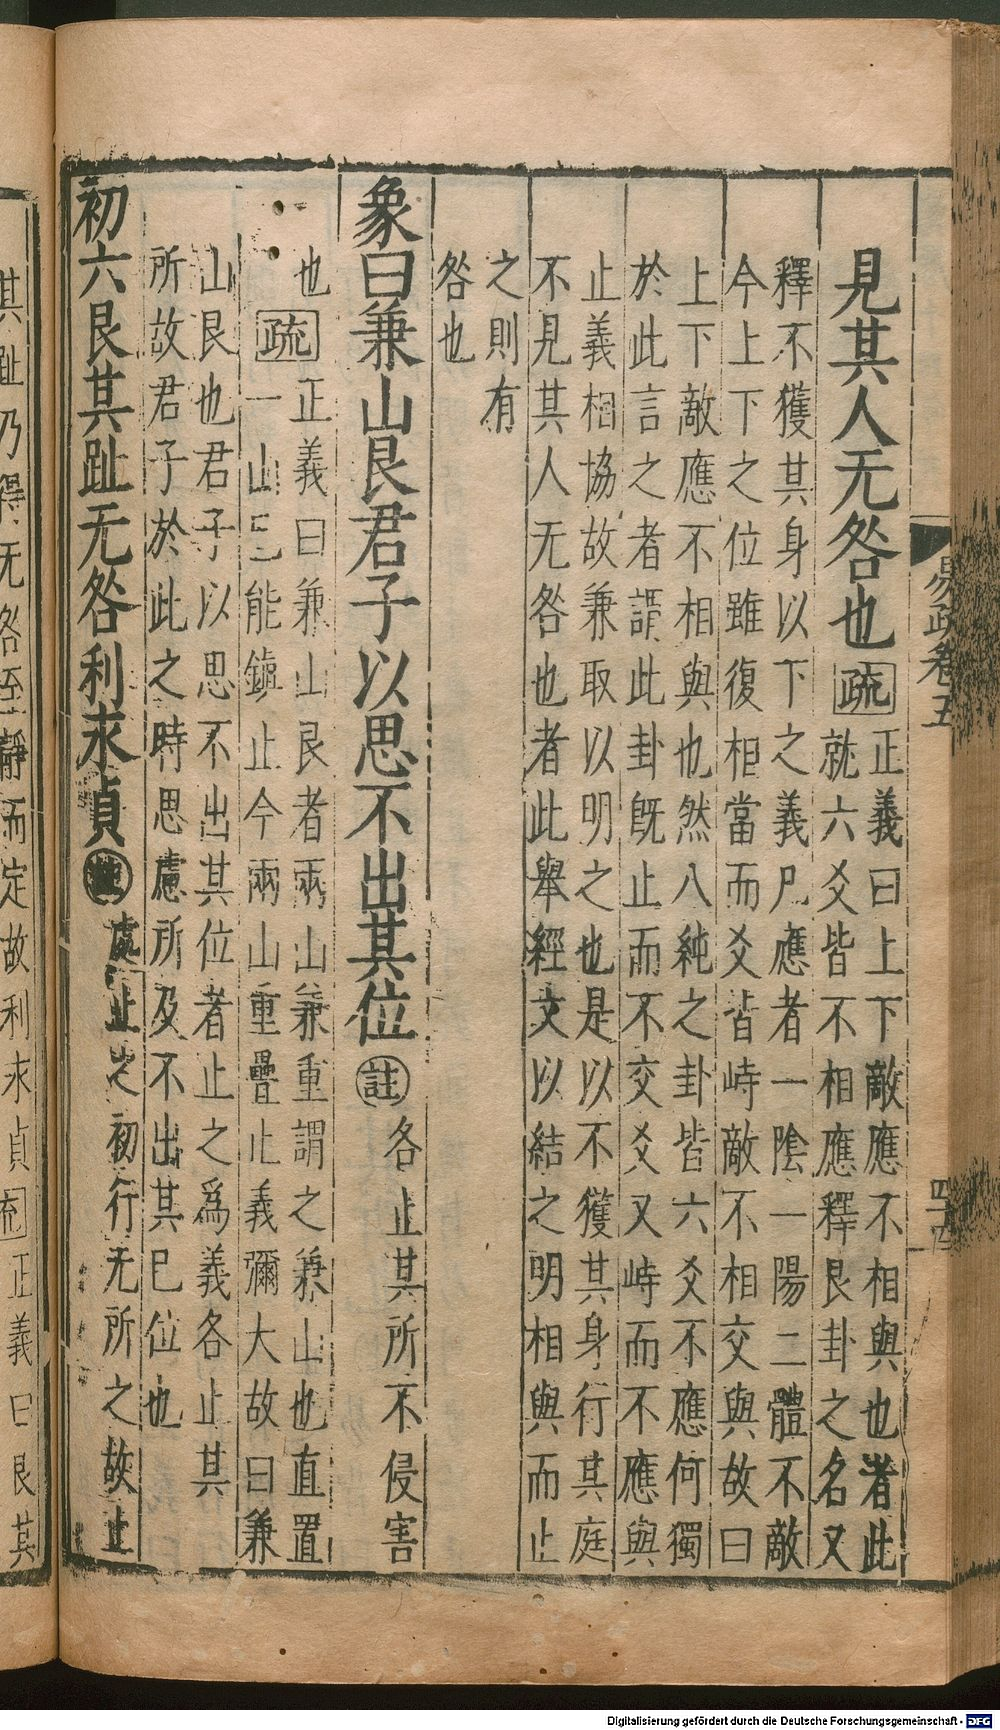 易疏卷五
四十四
見其人无咎也 疏 正義曰上下敵應不相與也者此
就六爻皆不相應釋艮卦之名又
釋不獲其身以下之義凡應者一陰一陽二體不敵
今上下之位雖復相當而爻皆峙敵不相交與故曰
上下敵應不相與也然八純之卦皆六爻不應何獨
於此言之者謂此卦旣止而不交爻又峙而不應與
止義相協故兼取以明之也是以不獲其身行其庭
不見其人无咎也者此舉經文以結之明相與而止
之則有
咎也
象曰兼山艮君子以思不出其位 註 各止其所不侵害
也 疏 正義曰兼山艮者兩山兼重謂之兼山也直置
一山已能鎮止今兩山重疊止義彌大故曰兼
山艮也君子以思不出其位者止之爲義各止其
所故君子於此之時思慮所及不出其已位也
初六艮其趾无咎利永貞 註 處止之初行无所之故止
其趾乃得无咎至靜而定故利永貞 疏 正義曰艮其
Digitalisierung gefördert durch die Deutsche Forschungsgemeinschaft - DFG